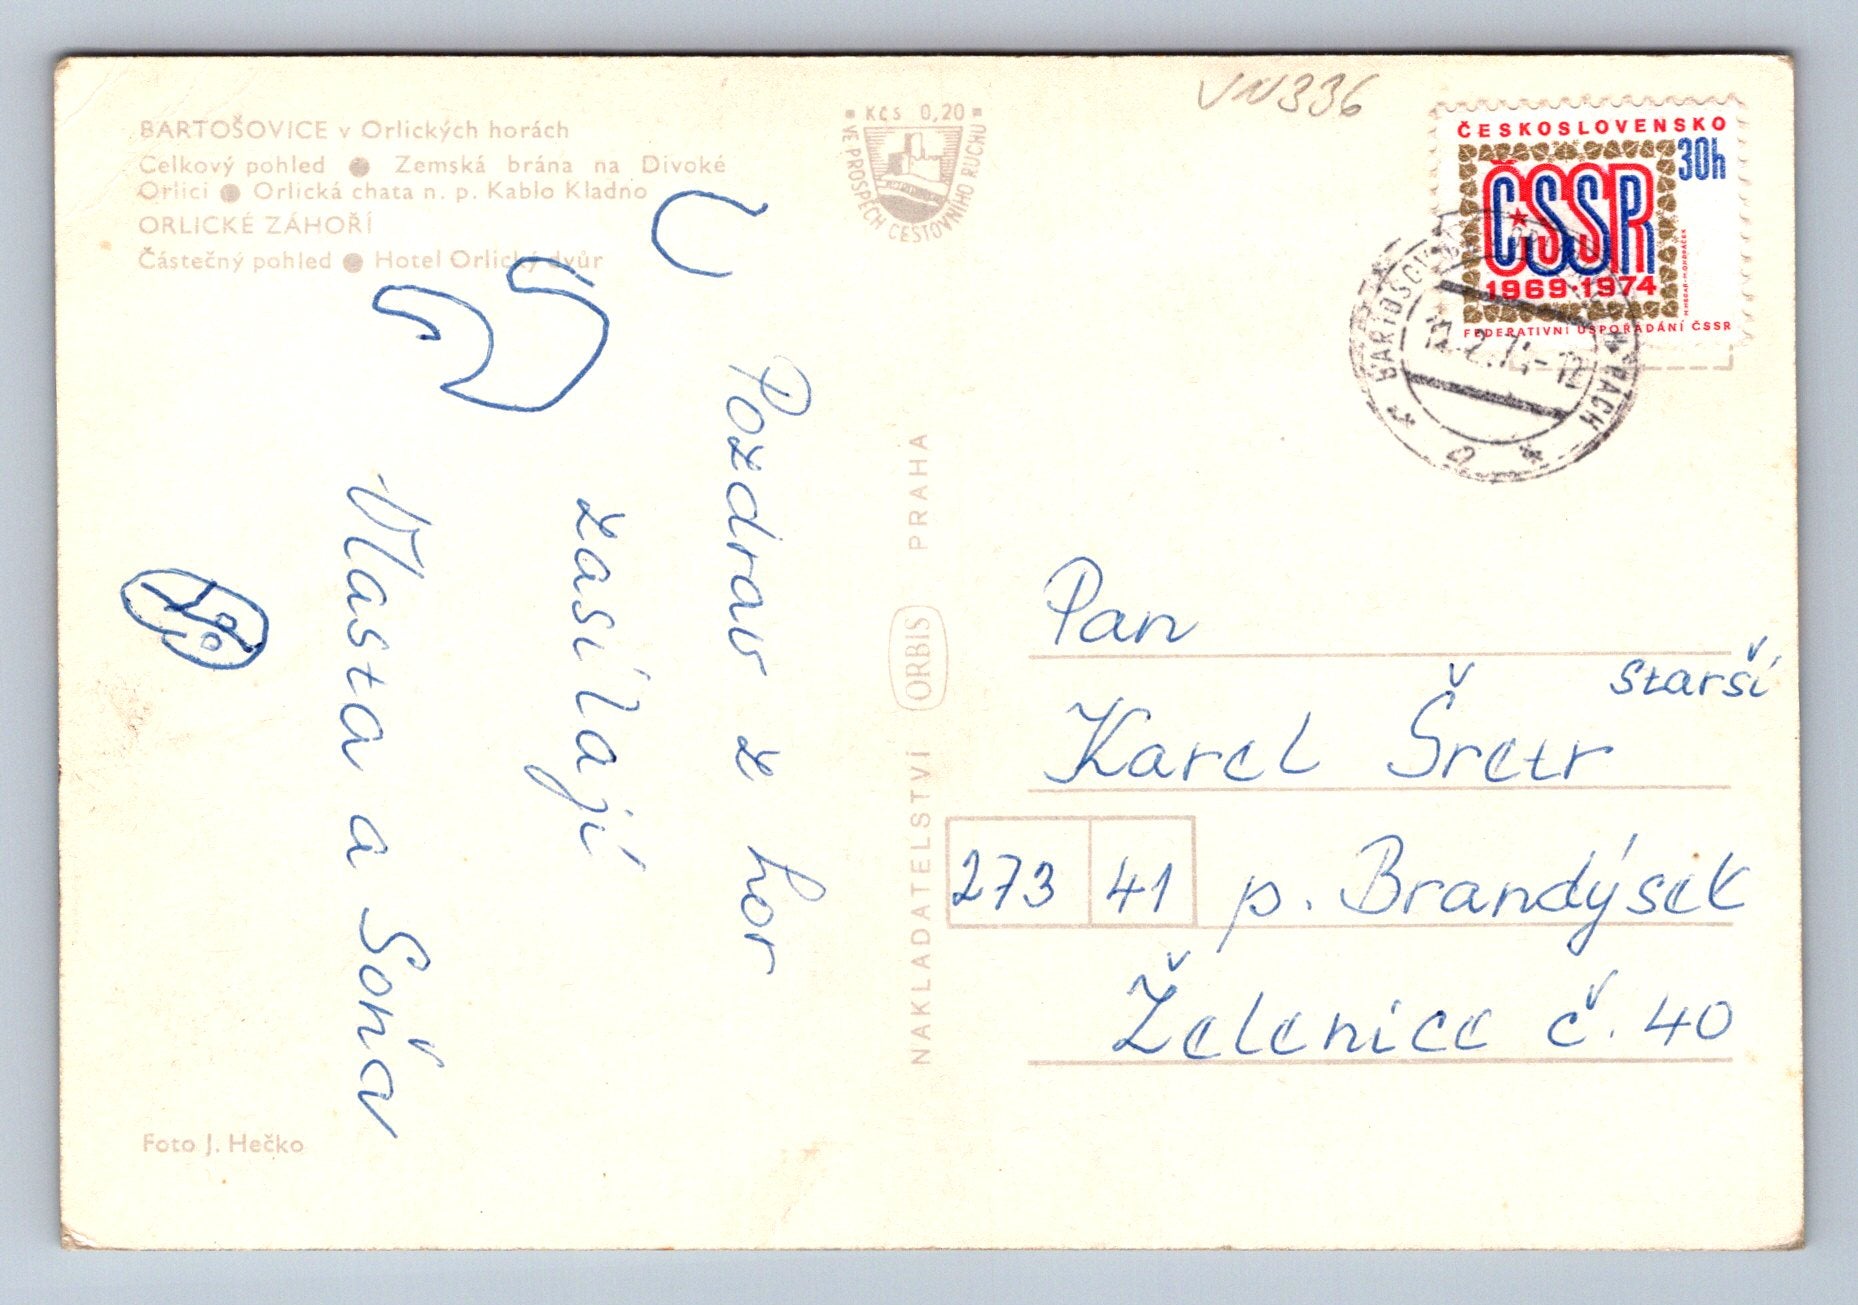 BARTOŠOVICE v Orlických horách
Celkový pohled ● Zemská brána na Divoké
Orlici ● Orlická chata n. p. Kablo Kladno
ORLICKÉ ZÁHOŘÍ
Částečný pohled ● Hotel Orlický dvůr
Kčs 0,20
VE PROSPĚCH CESTOVNÍHO RUCHU
VN336
ČESKOSLOVENSKO
30h
ČSSR
1969-1974
FEDERATIVNÍ USPOŘÁDÁNÍ ČSSR
Pozdrav z hor
zasílají
Vlasta a Soňa
NAKLADATELSTVÍ ORBIS PRAHA
Pan
starší
Karel Šretr
273 41 p. Brandýsek
Želenice č. 40
Foto J. Hečko